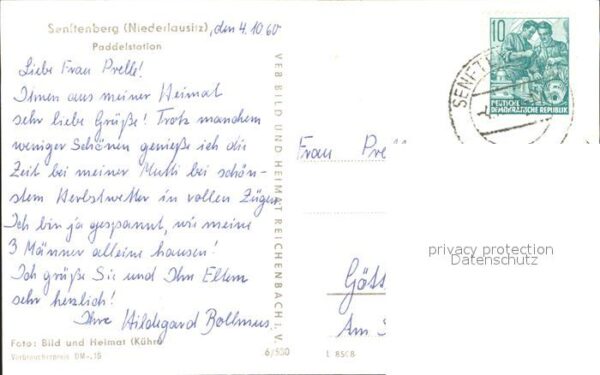 Senftenberg (Niederlausitz), den 4.10.60
Paddelstation
Liebe Frau Prelle!
Ihnen aus meiner Heimat
sehr liebe Grüße! Trotz manchem
weniger Schönen genieße ich die
Zeit bei meiner Mutti bei schön-
stem Herbstwetter in vollen Zügen
Ich bin ja gespannt, wie meine
3 Männer alleine hausen!
Ich grüße Sie und Ihre Eltern
sehr herzlich!
Ihre Hildegard Bollmus
Foto: Bild und Heimat (Kühn)
Verbraucherpreis DM -,15
VEB BILD UND HEIMAT REICHENBACH i. V.
6/580
10
DEUTSCHE
DEMOKRATISCHE REPUBLIK
SENFT
Frau Prel
privacy protection
Datenschutz
Gött
Am S